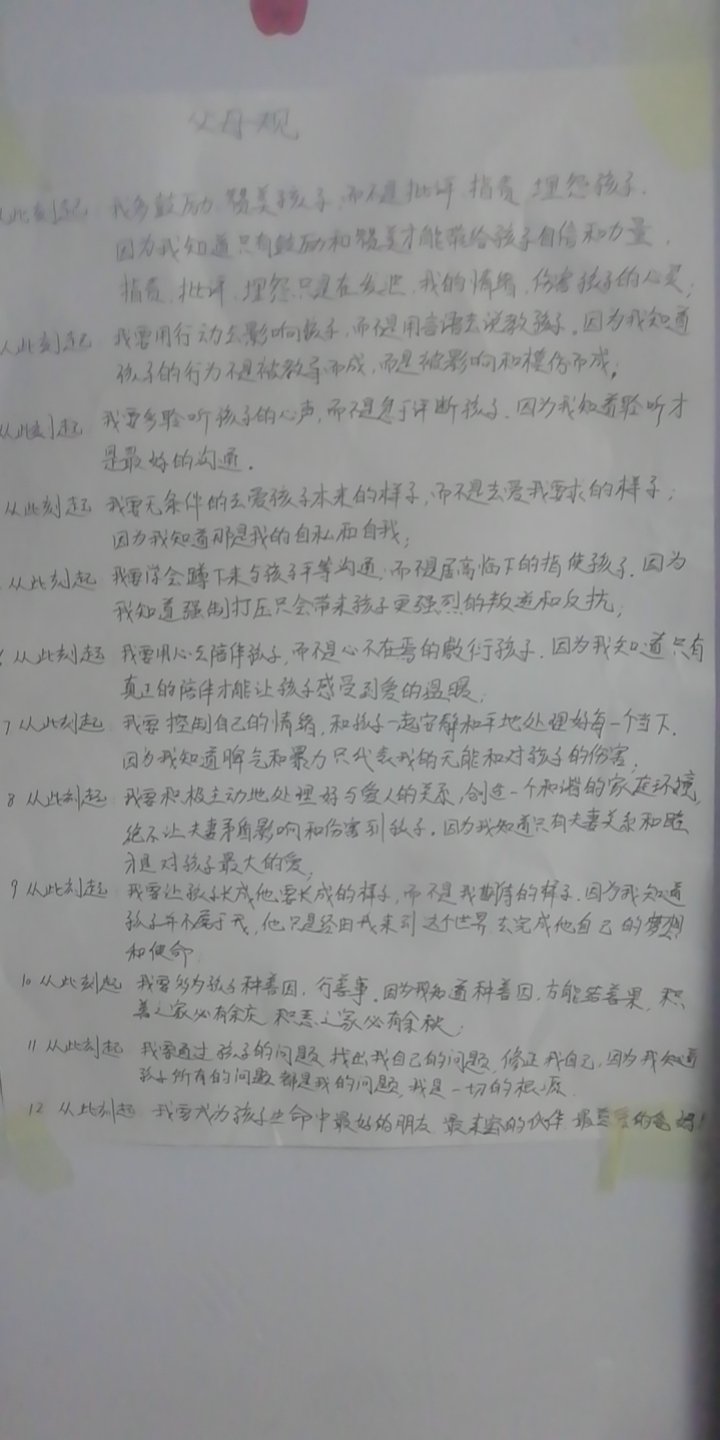 父母规
从此刻起 我多鼓励 赞美孩子,而不是批评 指责 埋怨孩子.
因为我知道只有鼓励和赞美才能带给孩子自信和力量,
指责,批评,埋怨只是在发泄,我的情绪,伤害孩子的心灵;
从此刻起 我要用行动去影响孩子,而不是用言语去说教孩子。因为我知道
孩子的行为不是被教导而成,而是被影响和模仿而成;
从此刻起 我要多聆听孩子的心声,而不是急于评断孩子,因为我知道聆听才
是最好的沟通.
从此刻起 我要无条件的去爱孩子本来的样子,而不是去爱我要求的样子;
因为我知道那是我的自私和自我;
从此刻起 我要学会蹲下来与孩子平等沟通,而不是居高临下的指使孩子.因为
我知道强制打压只会带来孩子更强烈的叛逆和反抗;
从此刻起 我要用心去陪伴孩子,而不是心不在焉的敷衍孩子.因为我知道只有
真正的陪伴才能让孩子感受到爱的温暖;
7 从此刻起 我要控制自己的情绪,和孩子一起安静和平地处理好每一个当下.
因为我知道脾气和暴力只代表我的无能和对孩子的伤害;
8 从此刻起 我要积极主动地处理好与爱人的关系,创造一个和谐的家庭环境,
绝不让夫妻矛盾影响和伤害到孩子.因为我知道只有夫妻关系和睦
才是对孩子最大的爱;
9 从此刻起 我要让孩子长成他要长成的样子,而不是我期待的样子.因为我知道
孩子并不属于我,他只是经由我来到这个世界,去完成他自己的梦想
和使命
10 从此刻起 我要多为孩子种善因,行善事.因为我知道种善因,方能结善果,积
善之家必有余庆 积恶之家必有余秧;
11 从此刻起 我要通过孩子的问题,找出我自己的问题,修正我自己,因为我知道
孩子所有的问题都是我的问题,我是一切的根源.
12 从此刻起 我要成为孩子生命中最好的朋友 最亲密的伙伴 最 的爸妈!